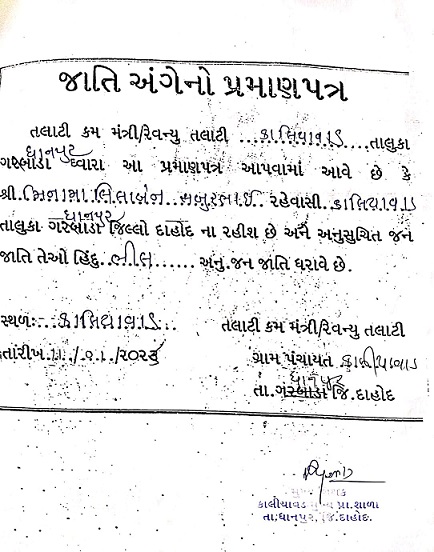 જાતિ અંગેનો પ્રમાણપત્ર
તલાટી કમ મંત્રી/રેવન્યુ તલાટી ...કાલિયાવાડ....તાલુકા
ધાનપુર
ગરબાડા દ્વારા આ પ્રમાણપત્ર આપવામાં આવે છે કે
શ્રી.મિનામા લિલાબેન...મબુરભાઈ. રહેવાસી..કાલિયાવાડ
ધાનપુર
તાલુકા ગરબાડા જિલ્લો દાહોદ ના રહીશ છે અને અનુસુચિત જન
જાતિ તેઓ હિંદુ..ભીલ...... અનુ.જન જાતિ ધરાવે છે.
સ્થળઃ-...કાલિયાવાડ...
તલાટી કમ મંત્રી/રેવન્યુ તલાટી
તારીખ.11../.01./૨૦૨૩
ગ્રામ પંચાયત કાળીયાવાડ
ધાનપુર
તા.ગરબાડા જિ.દાહોદ
કાલીયાવડ મુખ્ય પ્રા.શાળા
તા.ધાનપુર, જિ.દાહોદ.